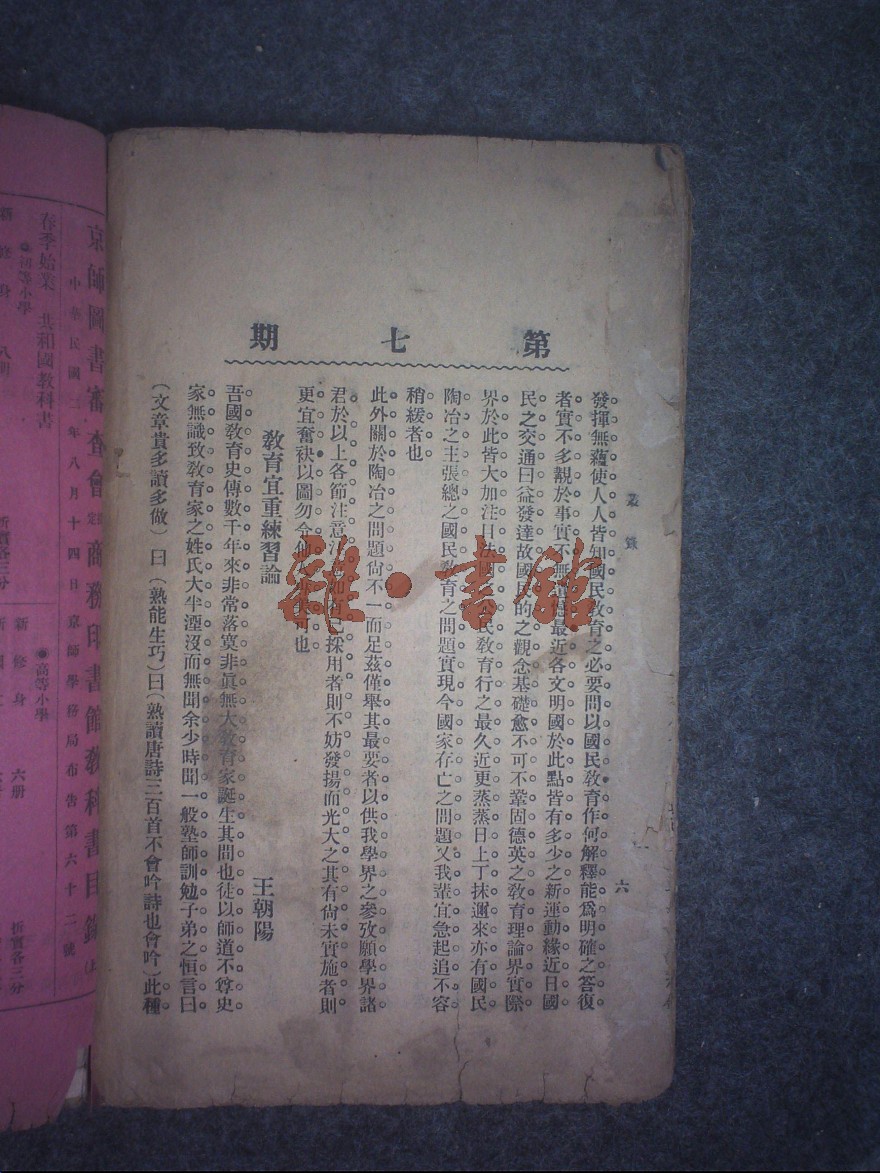 第七期
叢錄
六
發揮無蘊使人人皆知國民敎育之必要問以國民敎育作何解釋能爲明確之答復
者實不多覯於事實不無遺憾最近各文明國於此點皆有多少之新運動緣近日國
民之交通日益發達故國民的之觀念基礎愈不可不鞏固德英之敎育理論界實際
界於此皆大加注目法國民敎育行之最久近更蒸蒸日上丁抹邇來亦有國民
陶冶之主張總之國民敎育之問題實現今國家存亡之問題又我輩宜急起追不容
稍緩者也
此外關於陶冶之問題尙不一而足茲僅舉其最要者以供我學界之參攷願學界諸
君於以上各節注意已採用者則不妨發揚而光大之其有尙未實施者則
更宜奮袂以圖勿令他人可也
敎育宜重練習論
王朝陽
吾國敎育史傳數千年來非常落寞非眞無大敎育家誕生其間也徒以師道不尊史
家無識致敎育家之姓氏大半湮沒而無聞余少時聞一般塾師訓勉子弟之恒言曰
(文章貴多讀多做)曰(熟能生巧)曰(熟讀唐詩三百首不會吟詩也會吟)此種
雜·書館
京師圖書審查會定商務印書館敎科書目錄
中華民國二年八月十四日京師學務局布告第六十二號
春季始業 共和國敎科書
●初等小學
●高等小學
新修身 八冊 折實各三分
新修身 六冊 折實各三分